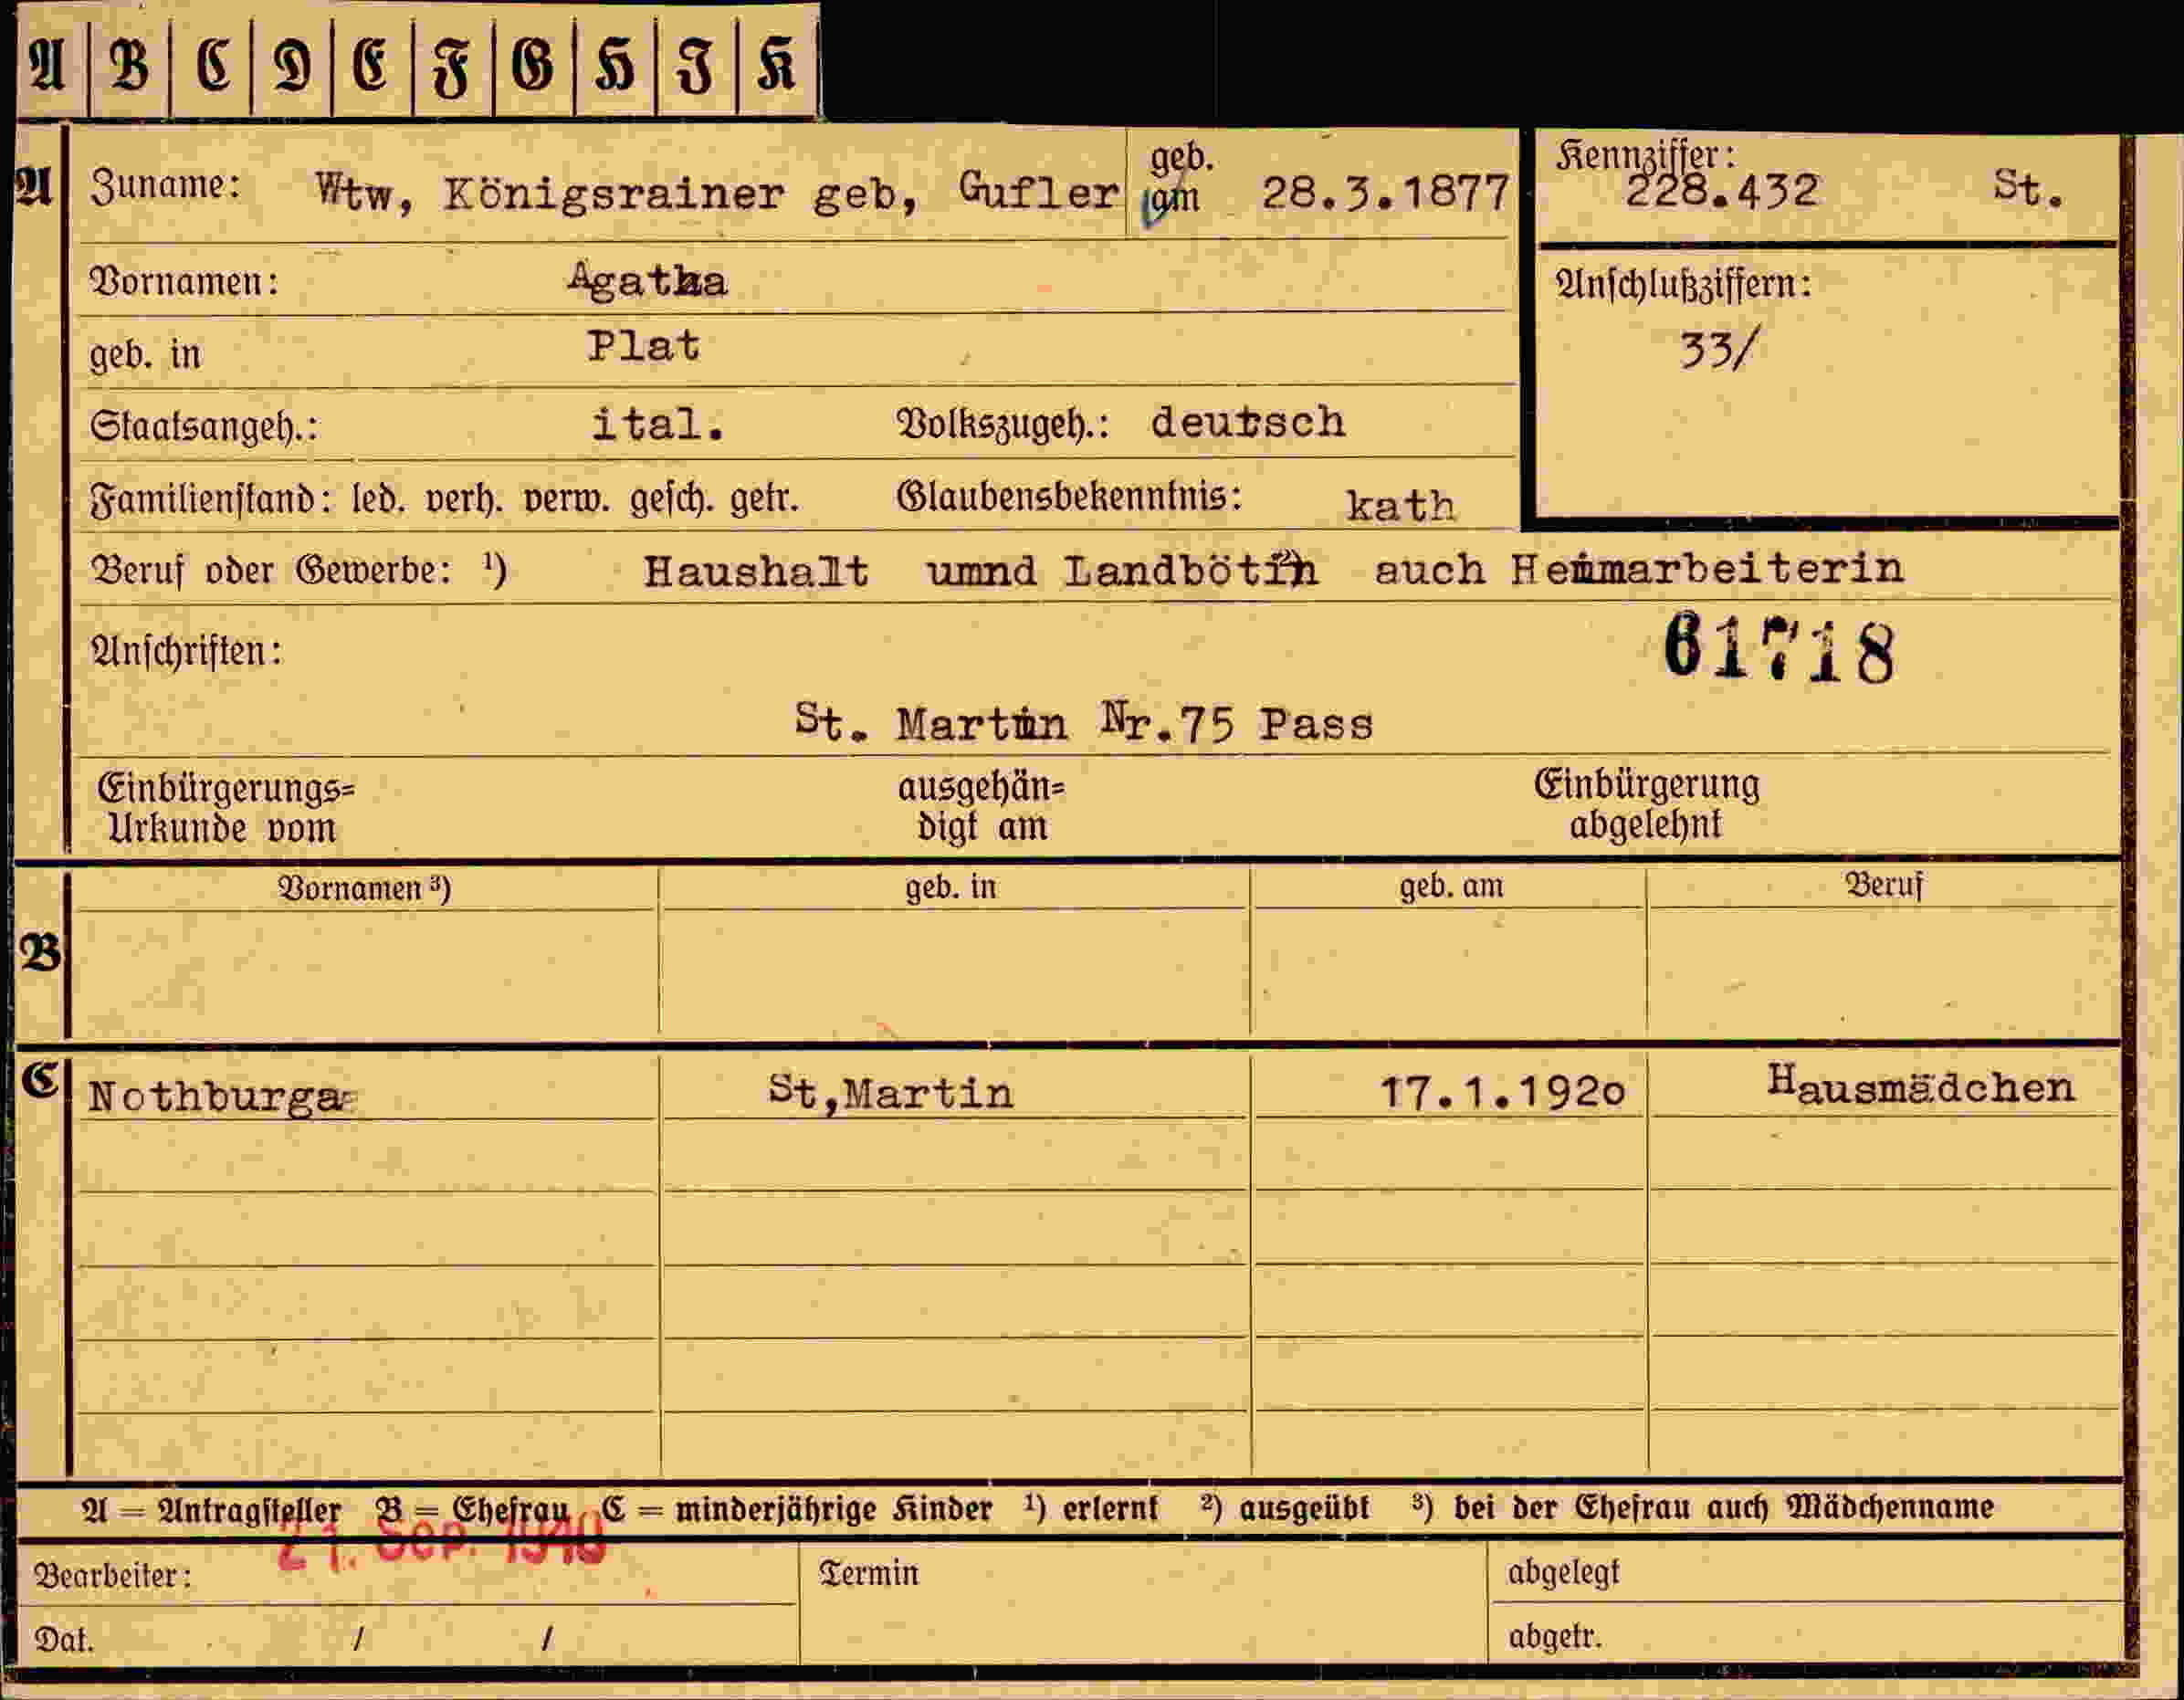 A B C D E F G H J K
A Zuname: Wtw, Königsrainer geb, Gufler geb. am 28.3.1877 Kennziffer: 228.432 St.
Vornamen: Agatha
Anschlußziffern:
geb. in Plat 33/
Staatsangeh.: ital. Volkszugeh.: deutsch
Familienstand: led. verh. verw. gesch. getr. Glaubensbekenntnis: kath
Beruf oder Gewerbe: ¹) Haushalt umnd Landbötin ²) auch Heimarbeiterin
Anschriften: 61718
St. Martin Nr.75 Pass
Einbürgerungs= ausgehän= Einbürgerung
Urkunde vom digt am abgelehnt
Vornamen ³) geb. in geb. am Beruf
B
C Nothburga St,Martin 17.1.192o Hausmädchen
A = Antragsteller B = Ehefrau C = minderjährige Kinder ¹) erlernt ²) ausgeübt ³) bei der Ehefrau auch Mädchenname
21. Sep. 1940
Bearbeiter: Termin abgelegt
Dat. / / abgetr.